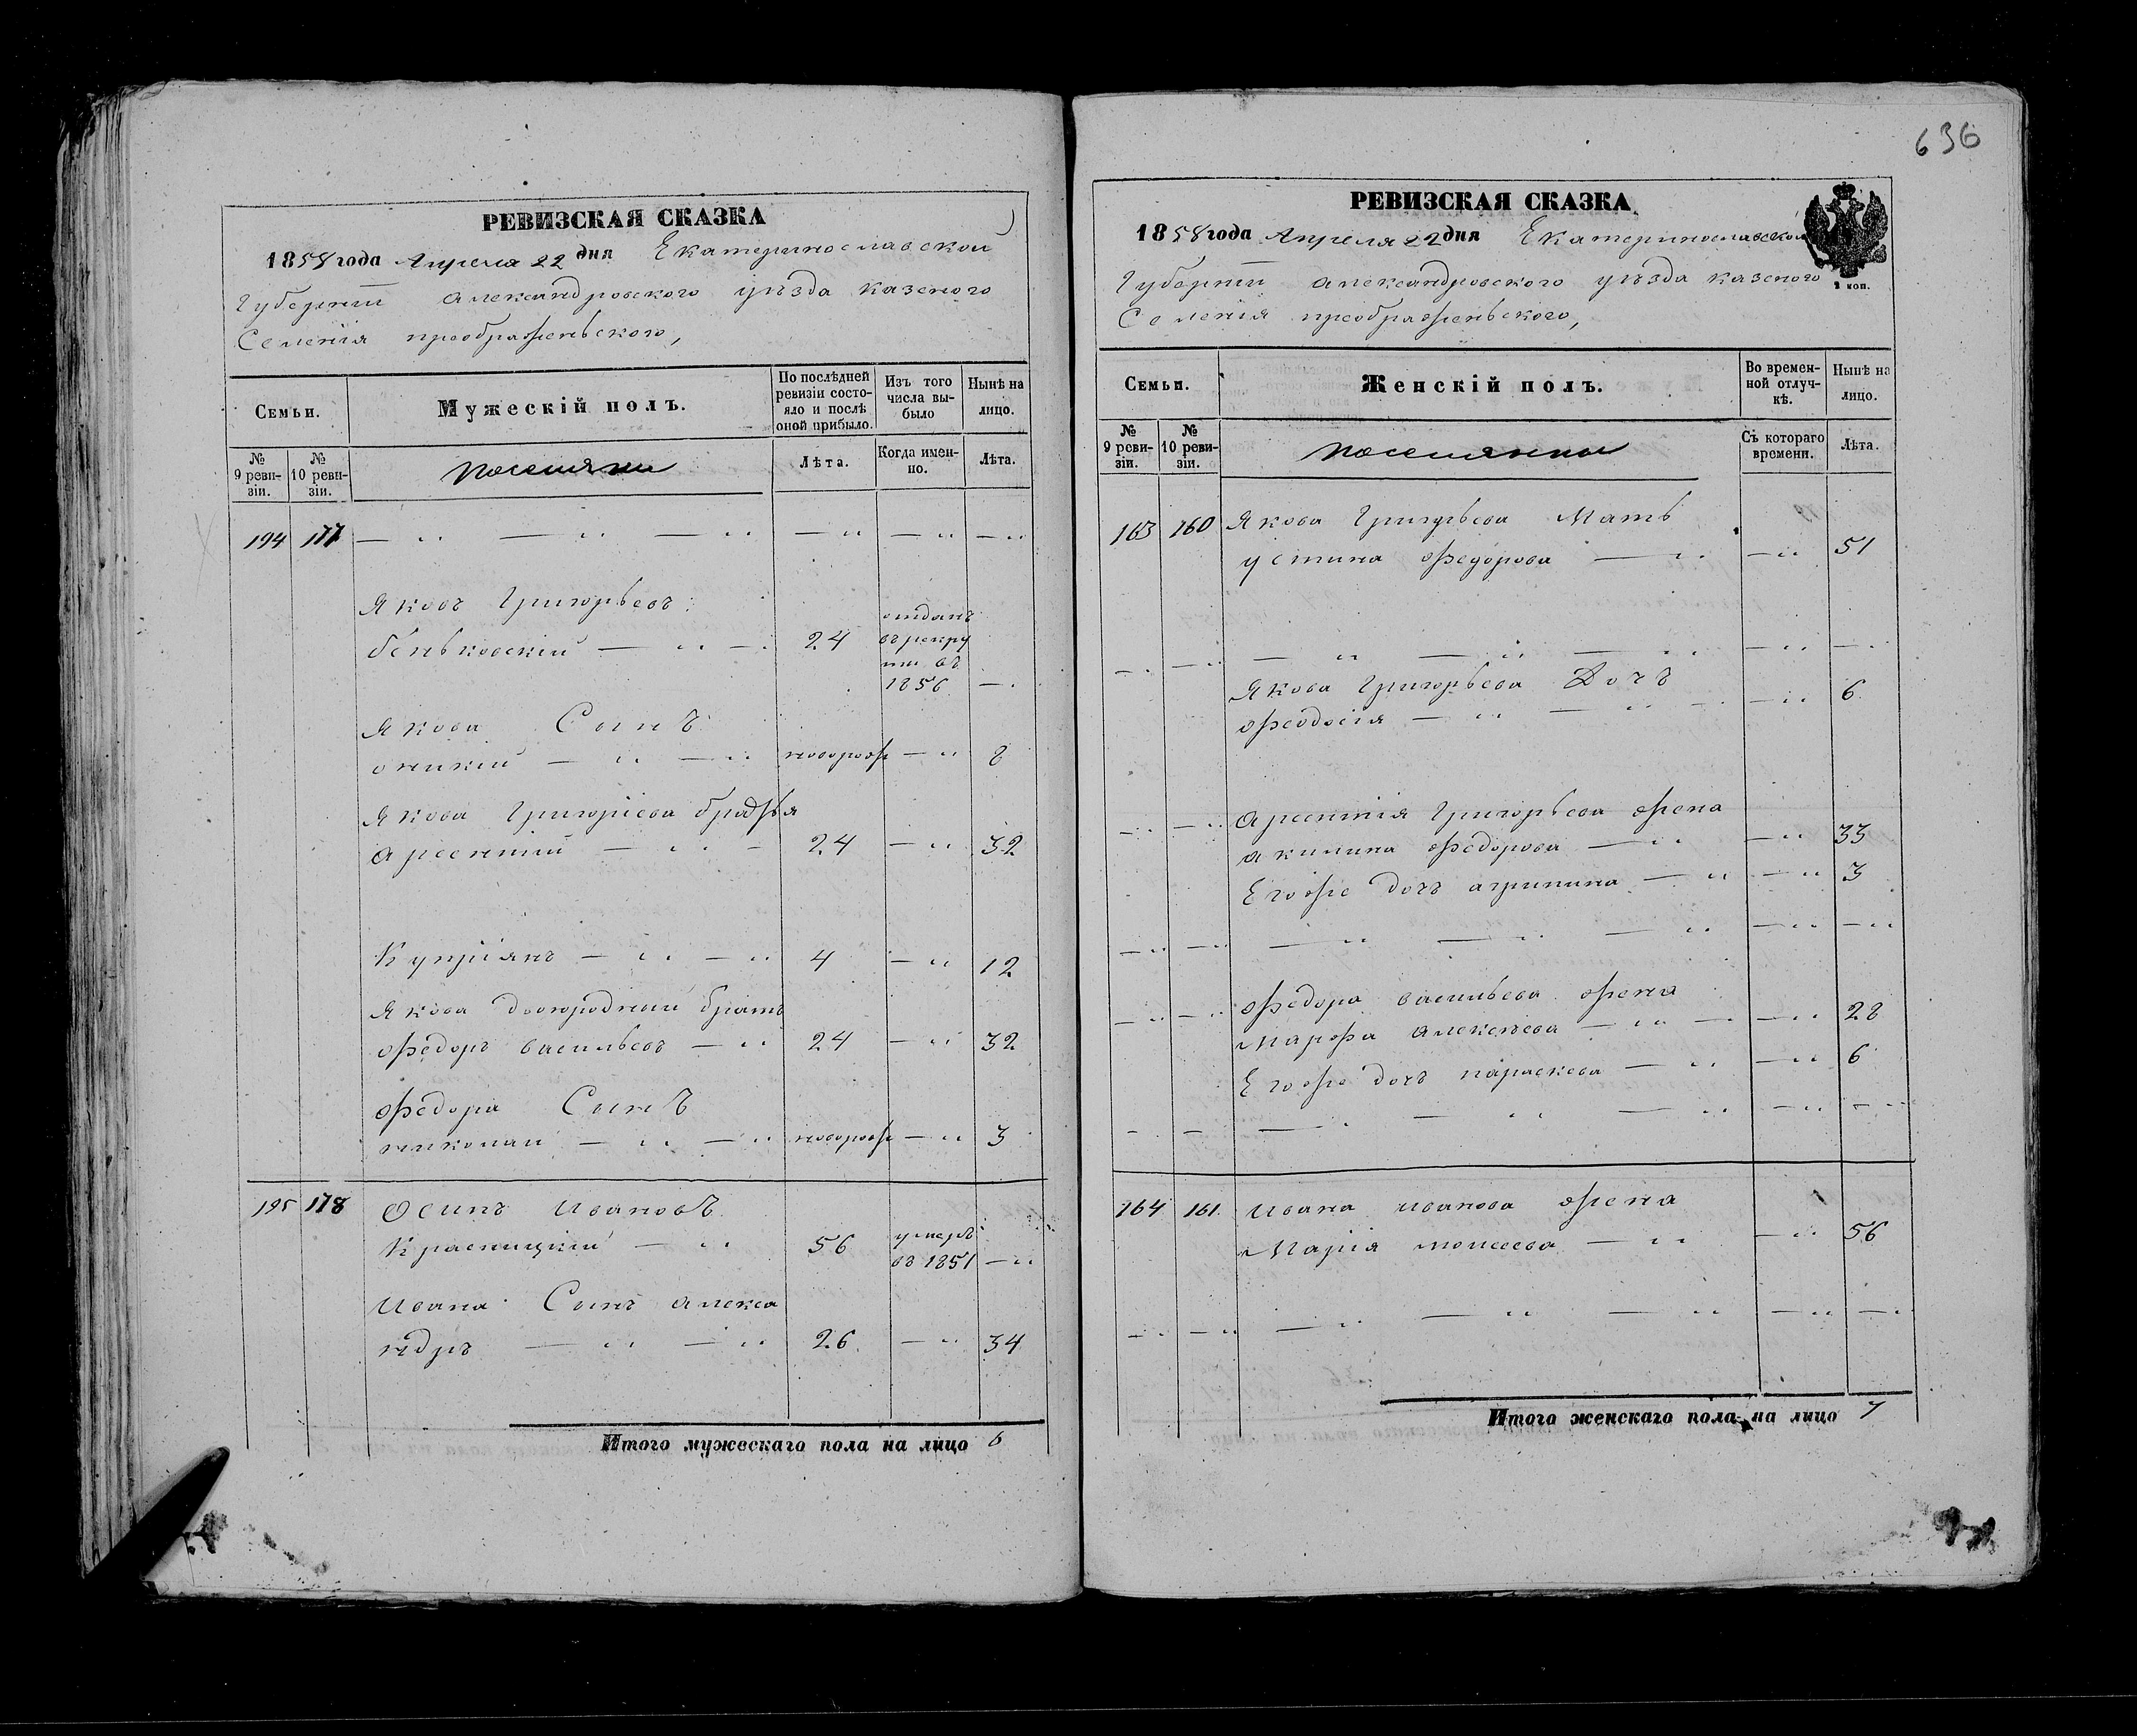 636
РЕВИЗСКАЯ СКАЗКА
1858 года Апреля 22 дня Екатеринославской
Губерніи Александровского уѣзда казеного
Селенія преображеньского,
Семьи.
Мужескій полъ.
По послѣдней ревизіи состо-
яло и послѣ
оной прибыло.
Изъ того
числа вы-
было
Нынѣ на
лицо.
№
9 реви-
зіи.
№
10 реви-
зіи.
поселяни
Лѣта.
Когда имен-
но.
Лѣта.
194 177 — " — " — " — " — " — "
Яковъ Григорьевъ
беньковскій — " — 24 отданъ
въ рекру
ти въ
1856 —
Якова Сынъ
оникій — " — " новорож — " 8
Якова Григоріева братья
Арсентій — " — 24 — " 32
Купріянъ — " — " 4 — " 12
Якова двоюродный братъ
Федоръ васильевъ — " 24 — " 32
Федора Сынъ
николай — " — " новорож — " 3
195 178 Осипъ Ивановъ
Красницкій — " 56 умеръ
въ 1851 — "
Ивана Сынъ алекса
ндръ — " — " 26 — " 34
Итого мужескаго пола на лицо 6
РЕВИЗСКАЯ СКАЗКА
1858 года Апреля 22 дня Екатеринославской
Губерніи Александровского уѣзда казеного
2 коп.
Селенія преображеньского,
Семьи.
Женскій полъ.
Во времен-
ной отлуч-
кѣ.
Нынѣ на
лицо.
№
9 реви-
зіи.
№
10 реви-
зіи.
поселянки
Съ котораго
времени.
Лѣта.
163 160 Якова Григорьева Мать
устина Федорова — " — " 51
— " — " — " — " — " — " — "
Якова Григорьева Дочъ
Феодосія — " — " — " 6
— " — " Арсентія Григорьева жена
Акилина Федорова — " — " 33
Егоже дочъ агрипина — " — " 3
— " — " — " — " — " — " — "
— " — " Федора васильева жена
Марфа Алексѣева — " — — " 28
Егоже дочъ параскева — " — " 6
— — — " — " — " — " — "
164 161 Ивана иванова жена
Марія моисеева — " — " 56
— " — " — " — " — " — " — "
Итого женскаго пола на лицо 7